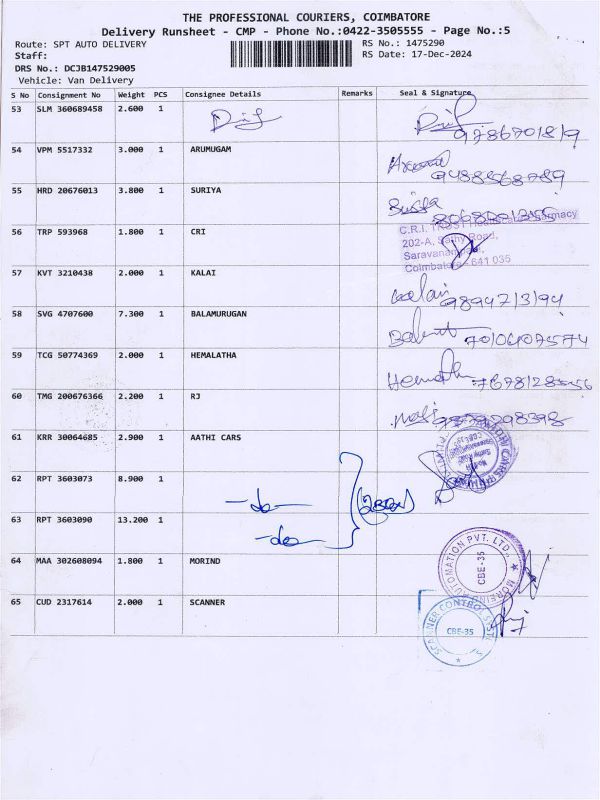 THE PROFESSIONAL COURIERS, COIMBATORE
Delivery Runsheet - CMP - Phone No.:0422-3505555 - Page No.:5
Route: SPT AUTO DELIVERY
RS No.: 1475290
Staff:
RS Date: 17-Dec-2024
DRS No.: DCJB147529005
Vehicle: Van Delivery
S No Consignment No Weight PCS Consignee Details Remarks Seal & Signature
53 SLM 360689458 2.600 1
54 VPM 5517332 3.000 1 ARUMUGAM 9488568789
55 HRD 20676013 3.800 1 SURIYA
56 TRP 593968 1.800 1 CRI
C.R.I. TRUST
202-A, Sathy Road,
Coimbatore - 641 035
57 KVT 3210438 2.000 1 KALAI Kalai 9894713194
58 SVG 4707600 7.300 1 BALAMURUGAN 7010407574
59 TCG 50774369 2.000 1 HEMALATHA Hematha
60 TMG 200676366 2.200 1 RJ
61 KRR 30064685 2.900 1 AATHI CARS
62 RPT 3603073 8.900 1 -do-
63 RPT 3603090 13.200 1 -do-
64 MAA 302608094 1.800 1 MORIND
AUTOMATION PVT. LTD.
CBE-35
65 CUD 2317614 2.000 1 SCANNER
SCANNER CONTROL SYSTE
CBE-35